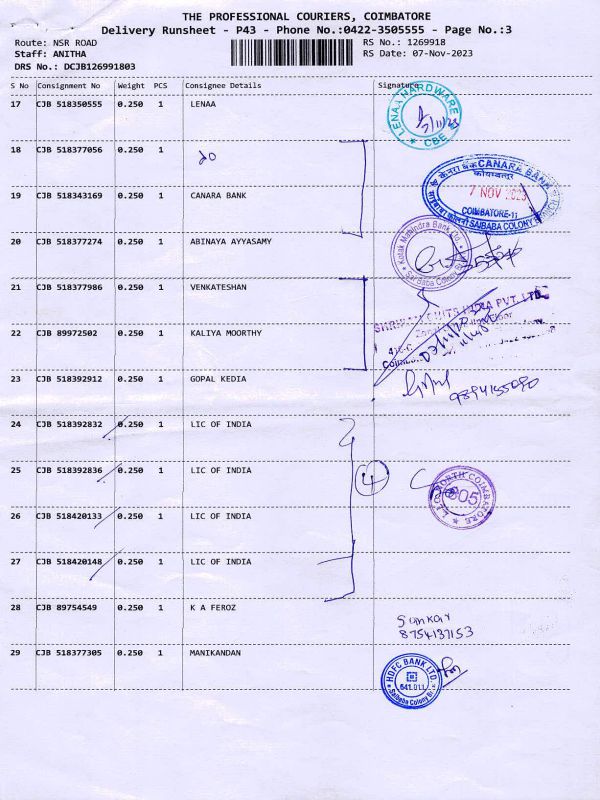 THE PROFESSIONAL COURIERS, COIMBATORE
Delivery Runsheet - P43 - Phone No.:0422-3505555 - Page No.:3
Route: NSR ROAD RS No.: 1269918
Staff: ANITHA RS Date: 07-Nov-2023
DRS No.: DCJB126991803
S No Consignment No Weight PCS Consignee Details Signature
17 CJB 518350555 0.250 1 LENAA
LENAA HARDWARE
* CBE *
18 CJB 518377056 0.250 1
19 CJB 518343169 0.250 1 CANARA BANK
केनरा बैंक CANARA BANK
7 NOV 2023
COIMBATORE-11
SAIBABA COLONY BRANCH
20 CJB 518377274 0.250 1 ABINAYA AYYASAMY
Kotak Mahindra Bank Ltd.
Sai Baba Colony Br
21 CJB 518377986 0.250 1 VENKATESHAN
CHITS INDIA PVT. LTD.
22 CJB 89972502 0.250 1 KALIYA MOORTHY
23 CJB 518392912 0.250 1 GOPAL KEDIA
24 CJB 518392832 0.250 1 LIC OF INDIA
25 CJB 518392836 0.250 1 LIC OF INDIA
4
26 CJB 518420133 0.250 1 LIC OF INDIA
NORTH COIMBATORE
805
27 CJB 518420148 0.250 1 LIC OF INDIA
28 CJB 89754549 0.250 1 K A FEROZ
Sankar
8754137153
29 CJB 518377305 0.250 1 MANIKANDAN
HDFC BANK LTD.
641 011
Saibaba Colony Br